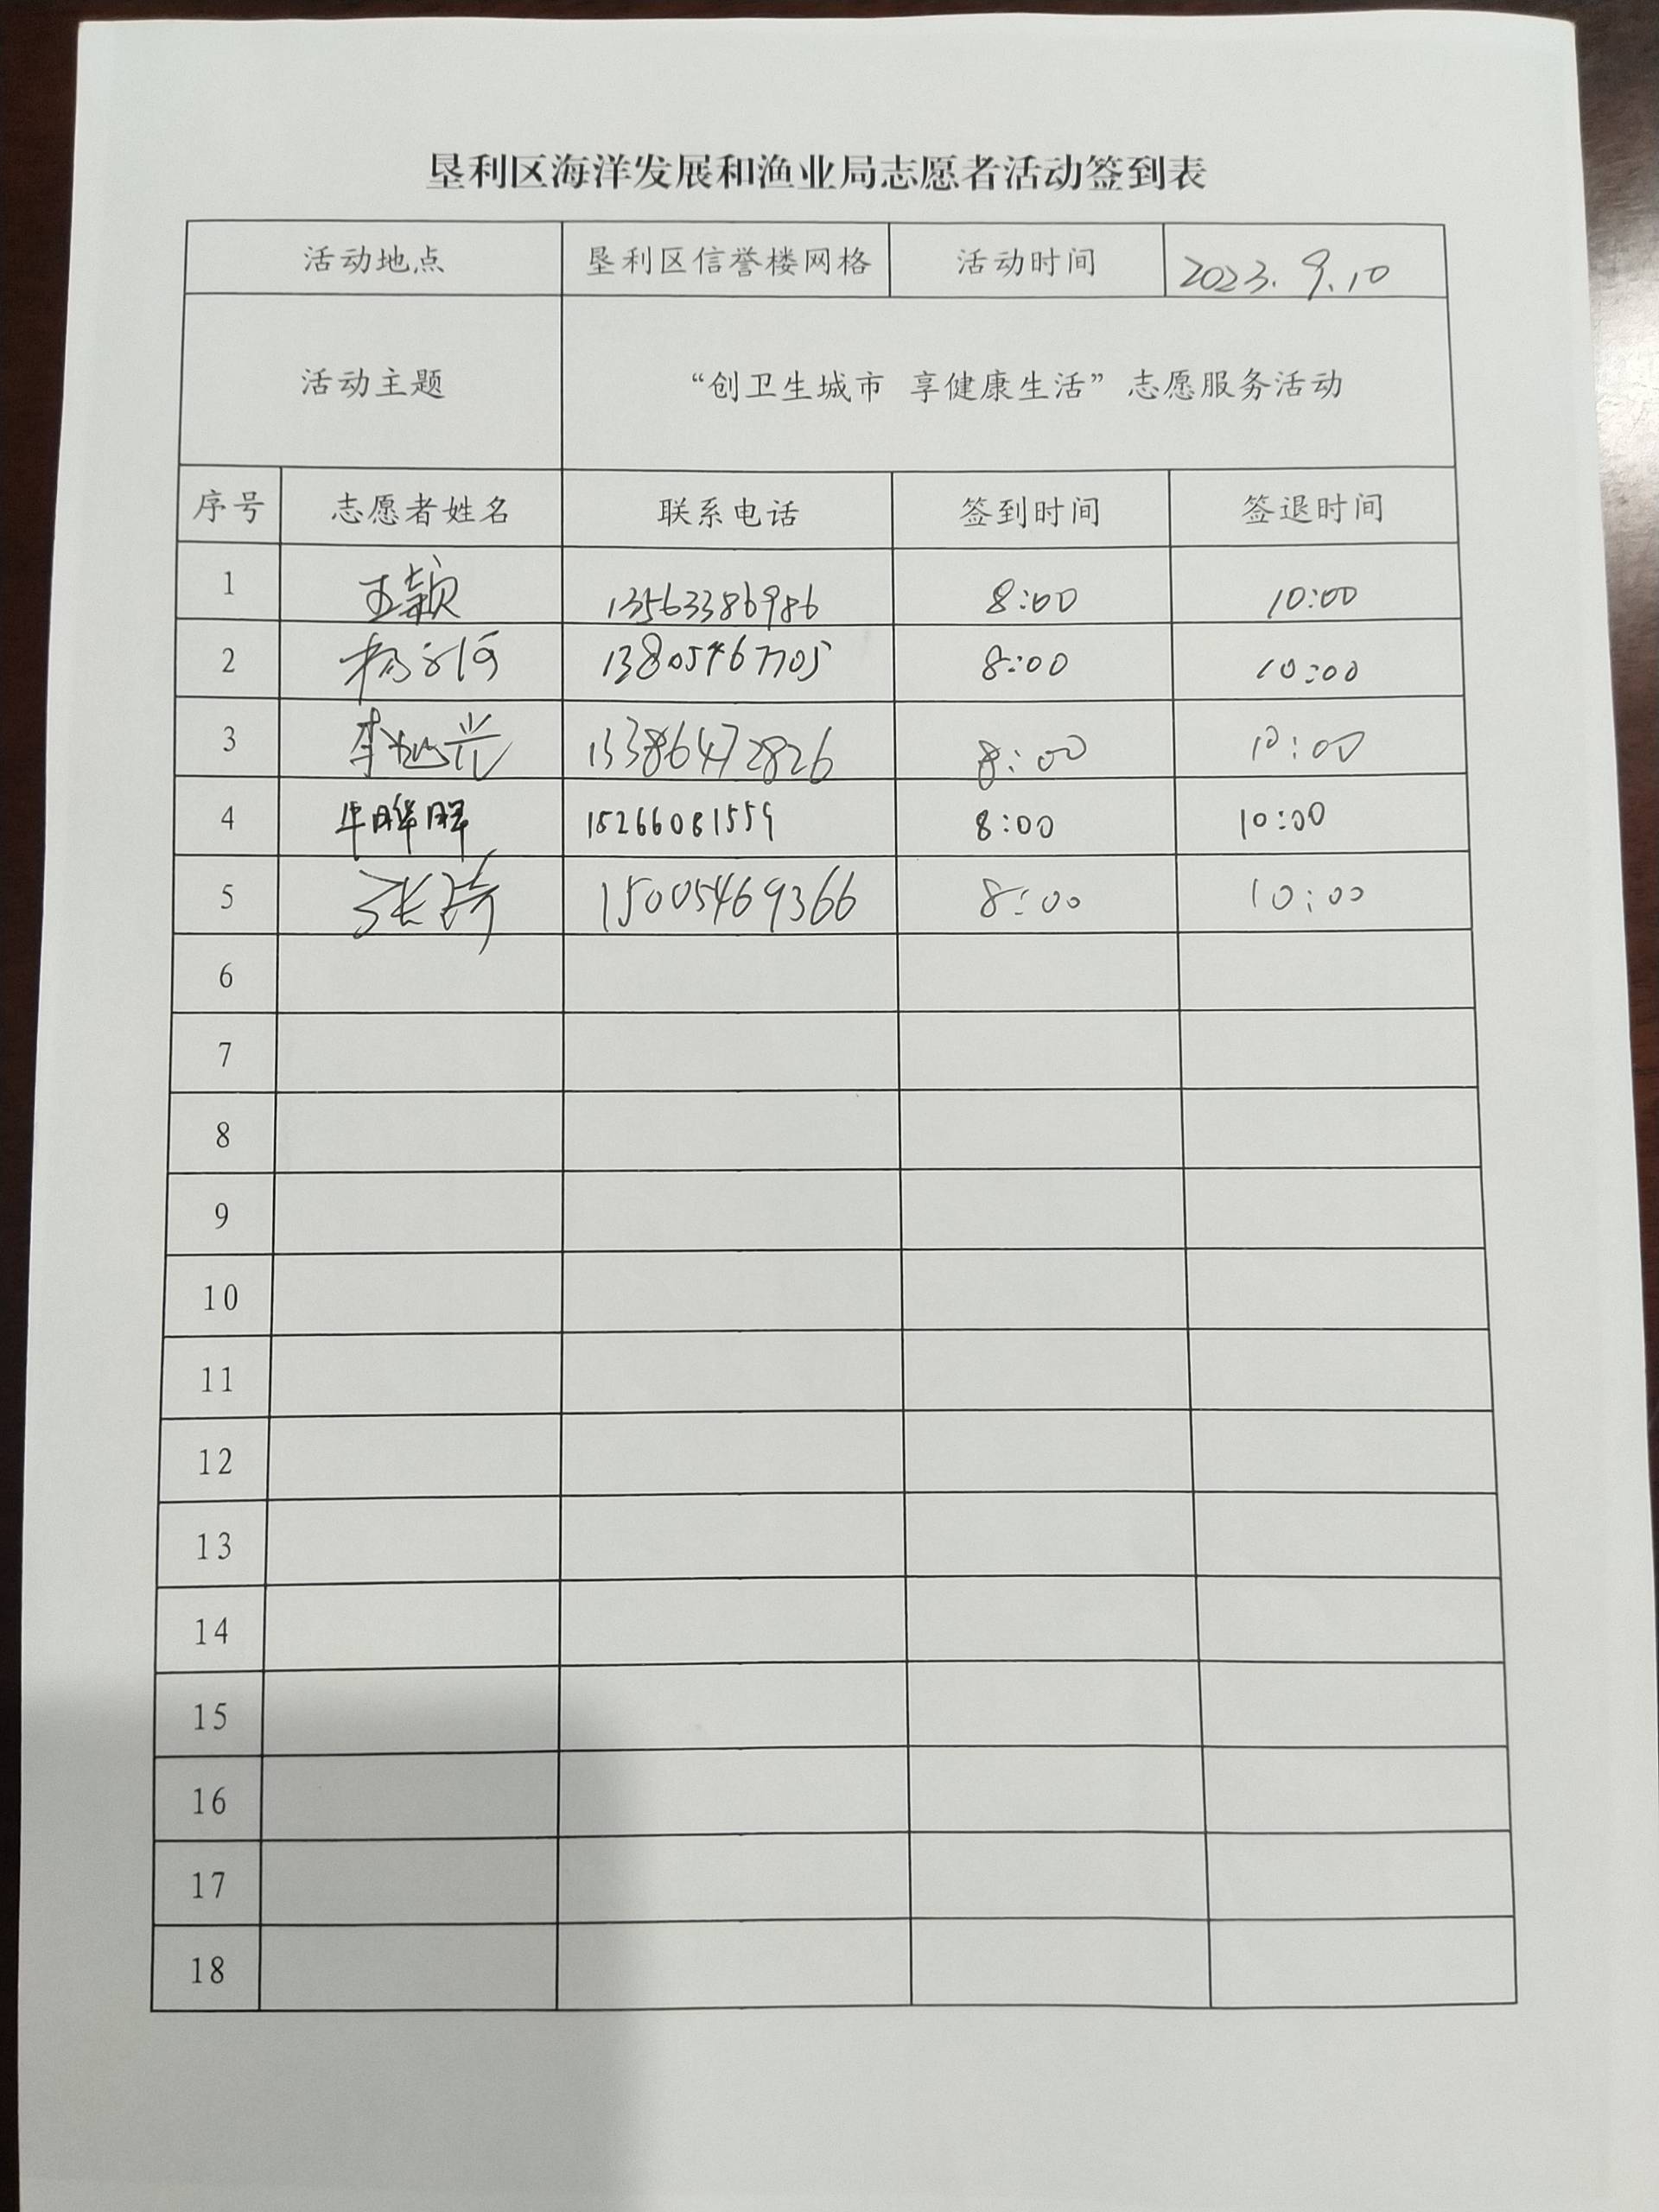 垦利区海洋发展和渔业局志愿者活动签到表
活动地点 垦利区信誉楼网格 活动时间 2023.9.10
活动主题 “创卫生城市 享健康生活”志愿服务活动
序号 志愿者姓名 联系电话 签到时间 签退时间
1 王颖 13563386986 8:00 10:00
2 13805467705 8:00 10:00
3 13386472826 8:00 10:00
4 15266081559 8:00 10:00
5 张琦 15005469366 8:00 10:00
6
7
8
9
10
11
12
13
14
15
16
17
18